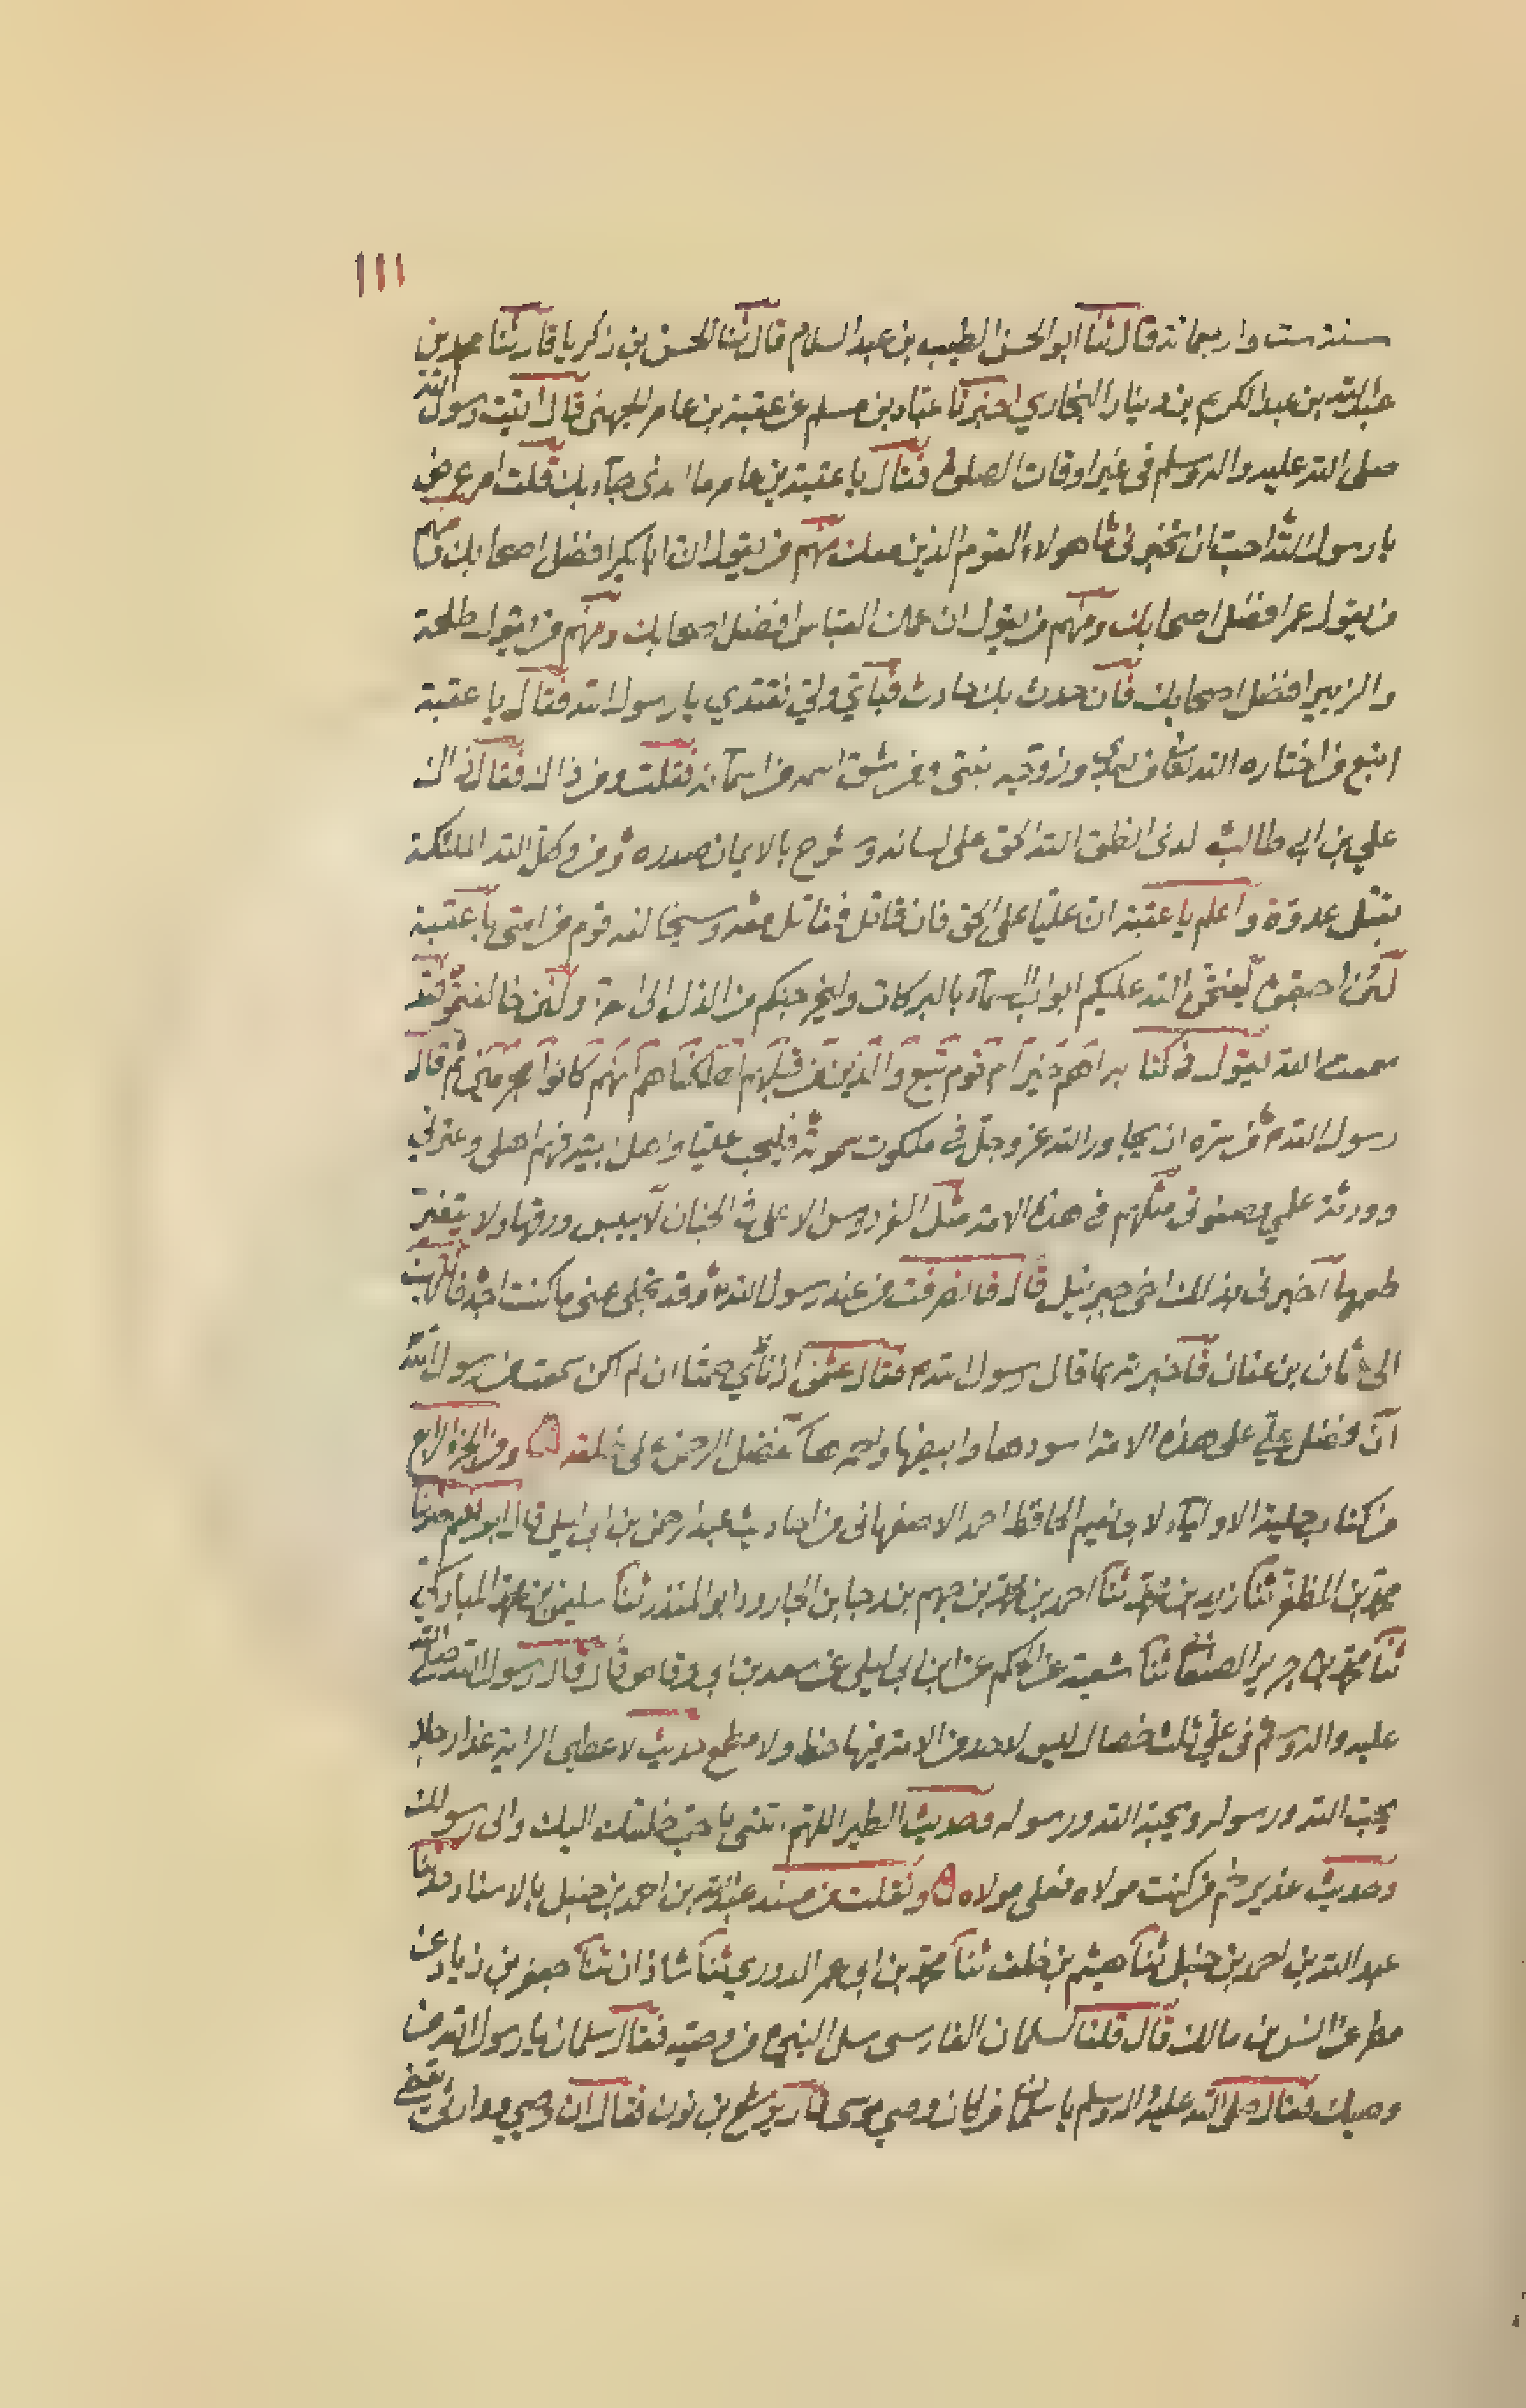 ١١١
سنة ست واربعمائة قال ثنا ابو الحسن الطيب بن عبد السلام قال ثنا الحسن بن زكريا قال ثنا محمد بن
عبد الله بن عبد الكريم بن دينار البخاري اخبرنا عباد بن مسلم عن عقبة بن عامر الجهني قال اتيت رسول الله
صلى الله عليه واله وسلم في غير اوقات الصلوة فقال يا عقبة بن عامر ما الذي جاء بك قلت امر عرض
يا رسول الله احب ان تخبرني ما هولاء القوم الذين معك منهم من يقول ان ابا بكر افضل اصحابك ومنهم
من يقول عمر افضل اصحابك ومنهم من يقول ان عمك العباس افضل اصحابك ومنهم من يقول طلحة
والزبير افضل اصحابك فان حدث بك حادث فبأي ولي نقتدي يا رسول الله فقال يا عقبة
اتبع من اختاره الله تعا من بعدي وزوجه بنتي ومن شق اسمه من اسمائه فقلت ومن ذاك فقال ذاك
علي بن ابي طالب الذي انطق الله الحق على لسانه وشرح بالايمان صدره ومن وكل الله الملئكة
بقتل عدوه واعلم يا عقبة ان عليا على الحق فان قاتل فقاتل معه وسيخالفه قوم من امتي يا عقبة
لئن ليفتحن الله عليكم ابواب السماء بالبركات وليخرجنكم من الذل الى ولئن خالفتموه فقد
سمعت الله يقول في كتابه اهم خير ام قوم تبع والذين من قبلهم اهلكناهم انهم كانوا مجرمين ثم قال
رسول الله من سره ان يجاور الله عز وجل في ملكوت سموته فليحب عليا واهل بيته فهم اهلي وعترتي
وورثة علمي وصفوتي مثلهم في هذه الامة مثل الفردوس الاعلى في الجنان لا ييبس ورقها ولا يتغير
طعمها اخبرني بذلك اخي جبرئيل قال فانصرفت من عند رسول الله وقد تجلى عني ما كنت اجد
الى عثمان بن عفان فاخبرته بما قال رسول الله فقال عثمن اذناي صمتا ان لم اكن سمعت من رسول الله
ان فضل علي على هذه الامة اسودها وابيضها واحمرها كفضل الرحمن على خلقه ومن الجزء الرابع
من كتاب حلية الاولياء لابي نعيم الحافظ احمد الاصفهاني من احاديث عبد الرحمن بن ابي ليلى قال ابو نعيم حدثنا
محمد بن المظفر ثنا زيد بن محمد ثنا احمد بن محمد بن جهم بن الجارود ابو المنذر ثنا سليمن بن محمد المباركي
ثنا محمد بن جرير الصنعاني ثنا شعبة عن الحكم عن ابن ابي ليلى عن سعد بن ابي وقاص قال قال رسول الله صلى الله
عليه واله وسلم في علي ثلث خصال ليس لاحد من الامة فيها حظ ولا مطمع حديث لاعطين الراية غدا رجلا
يحب الله ورسوله ويحبه الله ورسوله وحديث الطير اللهم ائتني باحب خلقك اليك والى رسولك
وحديث غدير خم من كنت مولاه فعلي مولاه ونقلت من مسند عبد الله بن احمد بن حنبل بالاسناد حدثنا
عبد الله بن احمد بن حنبل ثنا هيثم بن خلف ثنا محمد بن ابي عمر الدوري ثنا شاذان ثنا جعفر بن زياد عن
مطر عن انس بن مالك قال قلنا لسلمان الفارسي سل النبي من وصيه فقال سلمان يا رسول الله من
وصيك فقال صلى الله عليه واله وسلم يا سلمان من كان وصي موسى قال يوشع بن نون فقال ان وصيي ووارثي يقضي